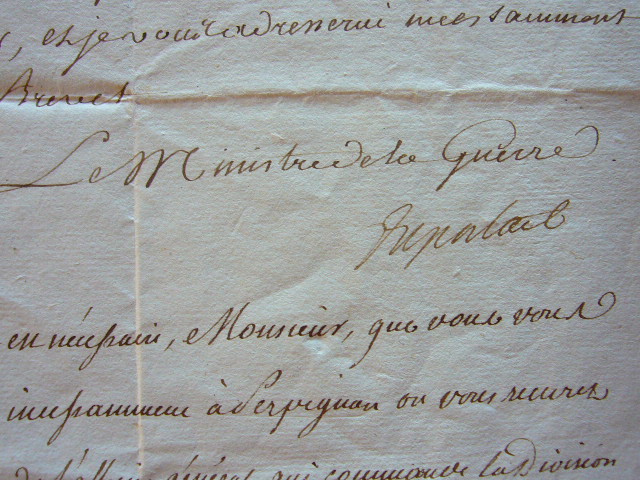 , et je vous adresserai incessamment
Brevet
Le Ministre de la Guerre
Duportail
en nécessaire, Monsieur, que vous vous
incessamment à Perpignan ou vous recevrez
de l'officier général qui commande la Division